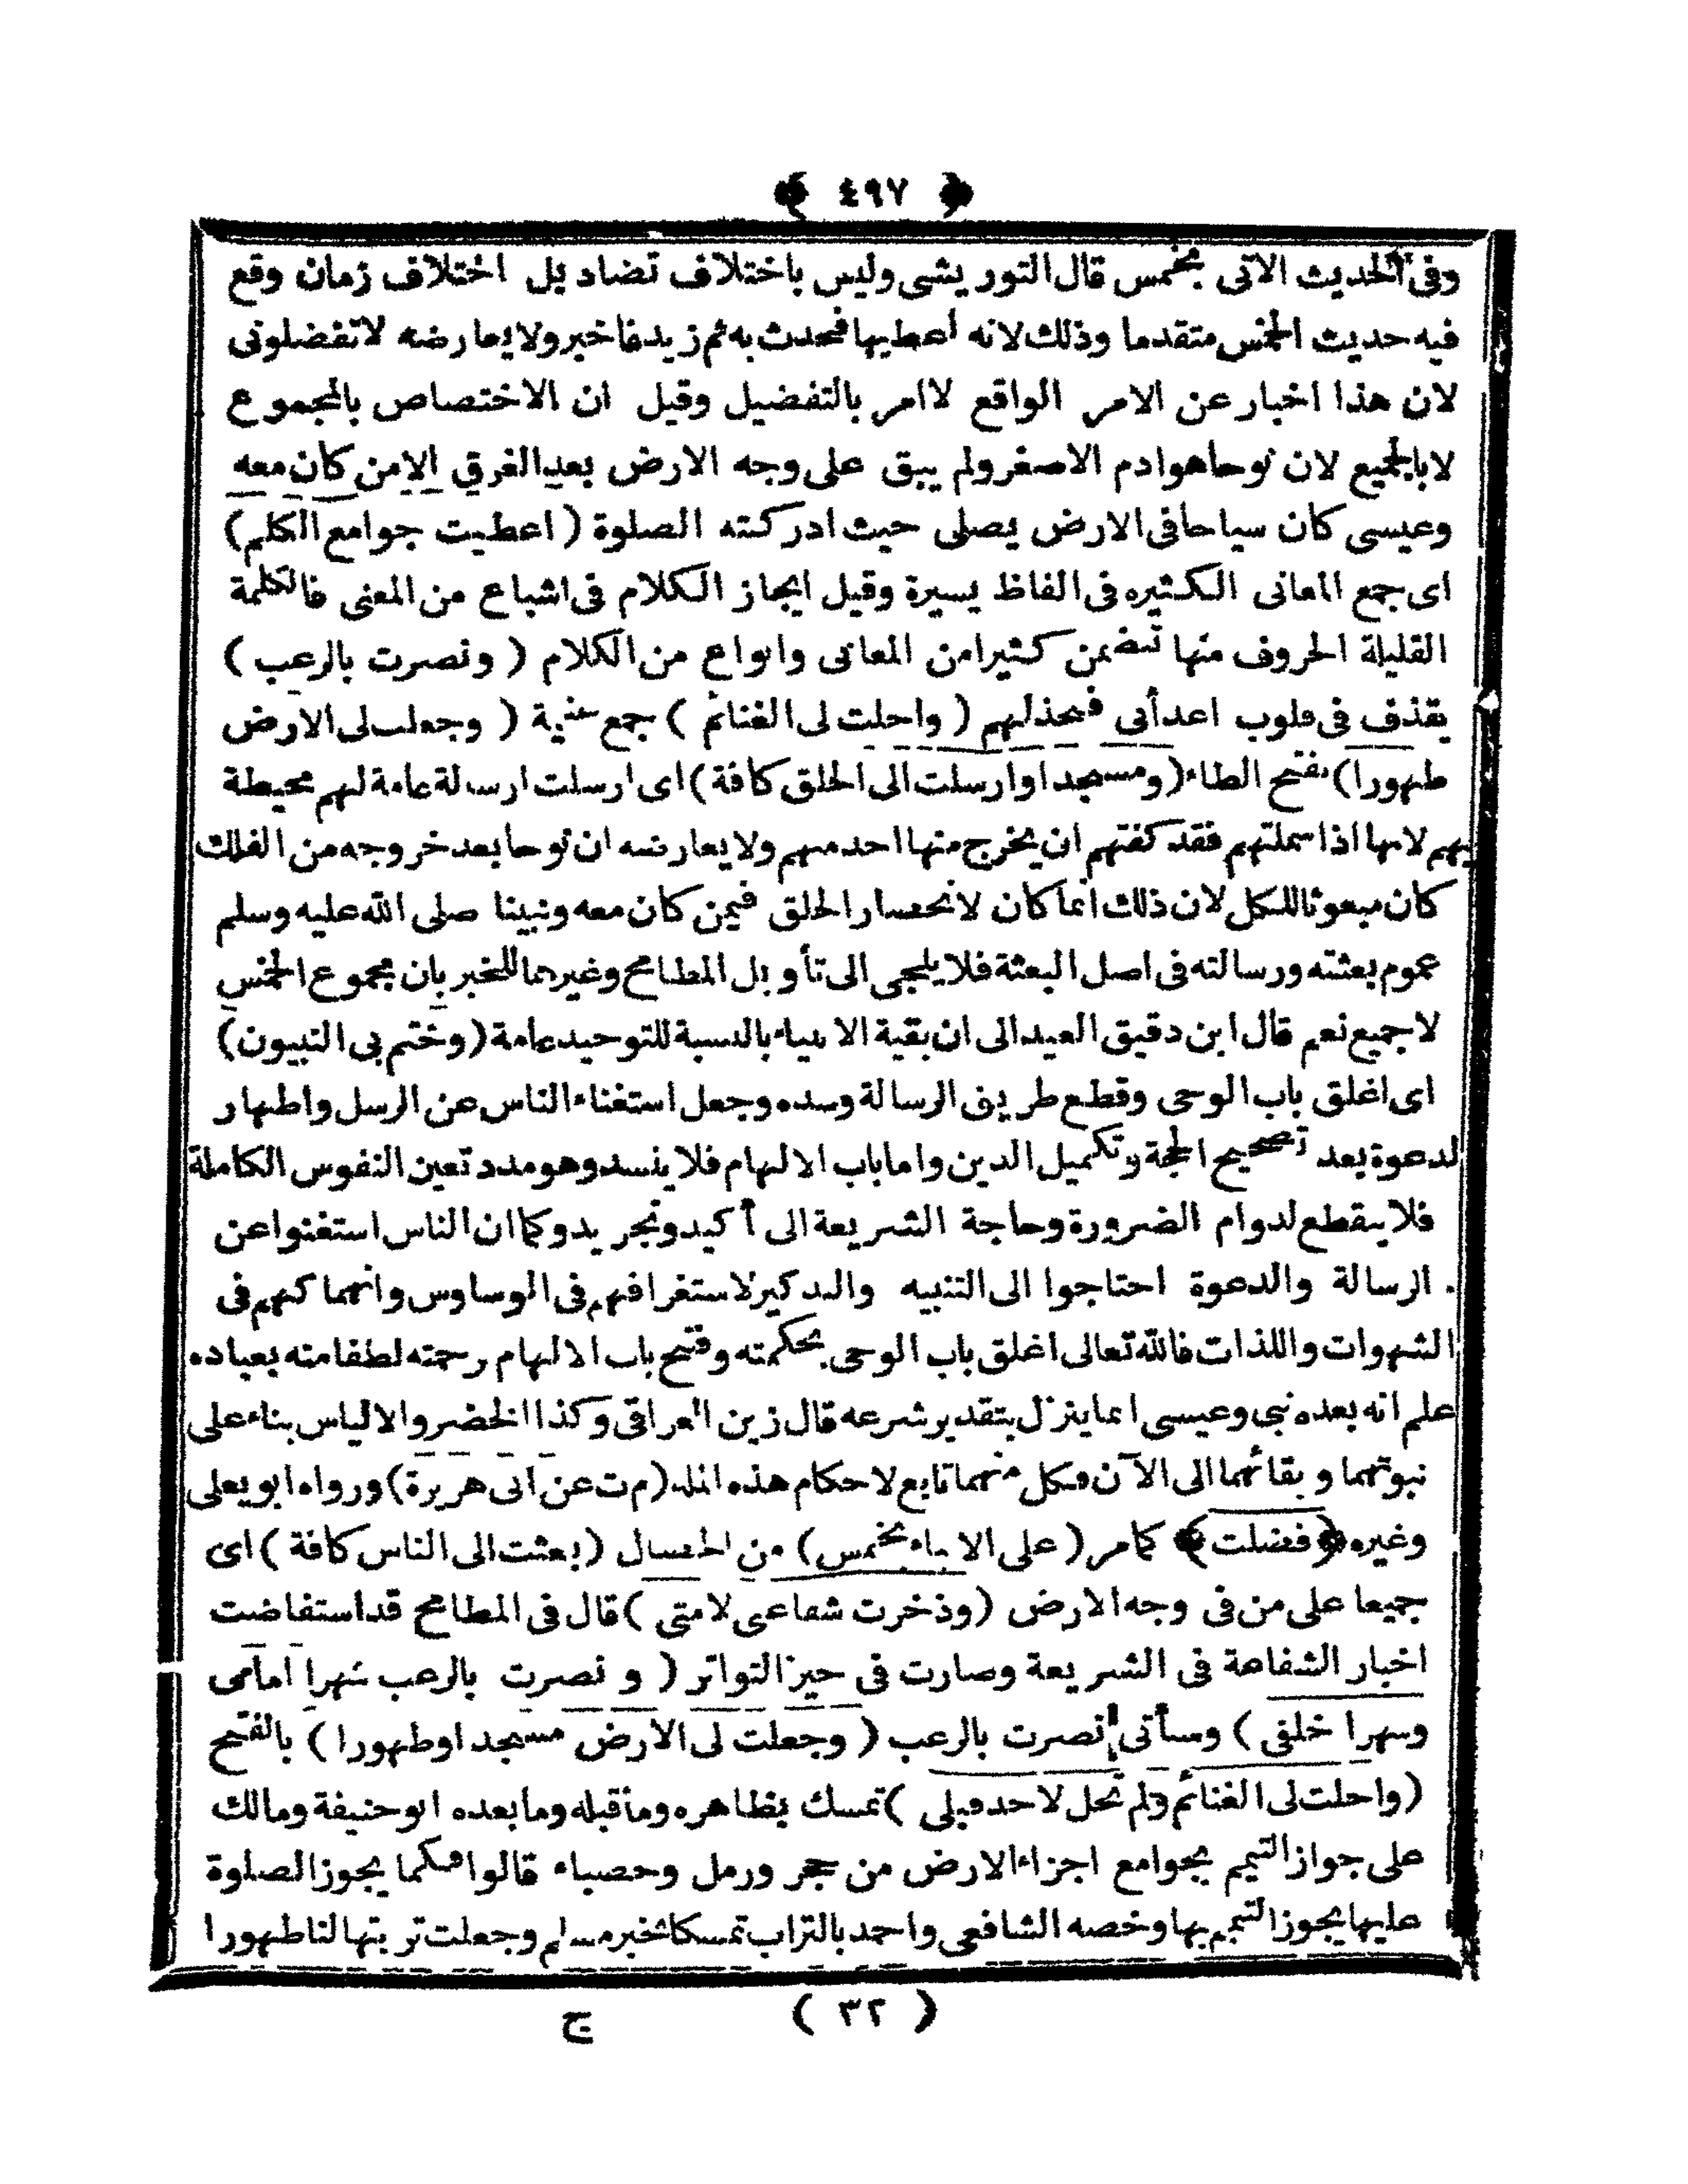 ﴿ ٤٩٧ ﴾
وفى الحديث الآتى بخمس قال التور يشى وليس باختلاف تضاد بل اختلاف زمان وقع
فيه حديث الخمس متقدما وذلك لانه اعطيها فحدث به ثم زيد فاخبر ولا يعارضه لا تفضلونى
لان هذا اخبار عن الامر الواقع لا امر بالتفضيل وقيل ان الاختصاص بالمجموع
لا بالجميع لان نوحا هو ادم الاصغر ولم يبق على وجه الارض بعد الغرق الا من كان معه
وعيسى كان سياحا فى الارض يصلى حيث ادركته الصلوة ( اعطيت جوامع الكلم )
اى جمع المعانى الكثيره فى الفاظ يسيرة وقيل ايجاز الكلام فى اشباع من المعنى فالكلمة
القليلة الحروف منها تتضمن كثيرا من المعانى وانواع من الكلام ( ونصرت بالرعب )
يقذف فى قلوب اعدأنى فيخذلهم ( واحلت لى الغنائم ) جمع غنيمة ( وجعلت لى الارض
طهورا ) بفتح الطاء ( ومسجدا وارسلت الى الخلق كافة ) اى ارسلت ارسالة عامة لهم محيطة
بهم لانها اذا شملتهم فقد كفتهم ان يخرج منها احد منهم ولا يعارضه ان نوحا بعد خروجه من الفلك
كان مبعوثا للكل لان ذلك انما كان لانحصار الخلق فيمن كان معه ونبينا صلى الله عليه وسلم
عموم بعثته ورسالته فى اصل البعثة فلا يلجى الى تأويل المطامح وغيرهما للخبر بان مجموع الخمس
لا جميع نعم قال ابن دقيق العيد الى ان بقية الانبياء بالنسبة للتوحيد عامة ( وختم بى النبيون )
اى اغلق باب الوحى وقطع طريق الرسالة وسده وجعل استغناء الناس عن الرسل واظهار
لدعوة بعد تصحيح الحجة وتكميل الدين واما باب الالهام فلا ينسد وهو مدد تعين النفوس الكاملة
فلا ينقطع لدوام الضرورة وحاجة الشريعة الى أكيد وتجريد وكما ان الناس استغنوا عن
الرسالة والدعوة احتاجوا الى التنبيه والتذكير لاستغراقهم فى الوساوس وانهماكهم فى
الشهوات واللذات فالله تعالى اغلق باب الوحى بحكمته وفتح باب الالهام رحمته لطفا منه بعباده
علم انه بعده نبى وعيسى انما ينزل بتقدير شرعه قال زين العراقى وكذا الخضر والالياس بناء على
نبوتهما وبقائهما الى الآن فكل منهما تابع لاحكام هذه المله ( م ت عن ابى هريرة ) ورواه ابو يعلى
وغيره ﴿ فضلت ﴾ كامر ( على الانبياء بخمس ) من الخصال ( بعثت الى الناس كافة ) اى
جميعا على من فى وجه الارض ( وذخرت شفاعتى لامتى ) قال فى المطامح قد استفاضت
اخبار الشفاعة فى الشريعة وصارت فى حيز التواتر ( و نصرت بالرعب شهرا امامى
وشهرا خلفى ) وسأتى نصرت بالرعب ( وجعلت لى الارض مسجدا وطهورا ) بالفتح
( واحلت لى الغنائم ولم تحل لاحد قبلى ) تمسك بظاهره وماقبله ومابعده ابو حنيفة ومالك
على جواز التيمم بجوامع اجزاء الارض من حجر ورمل وحصباء قالوا فكما يجوز الصلوة
عليها يجوز التيمم بها وخصه الشافعى واحمد بالتراب تمسكا بخبر مسلم وجعلت تربتها لنا طهورا
( ٣٢ ) ج